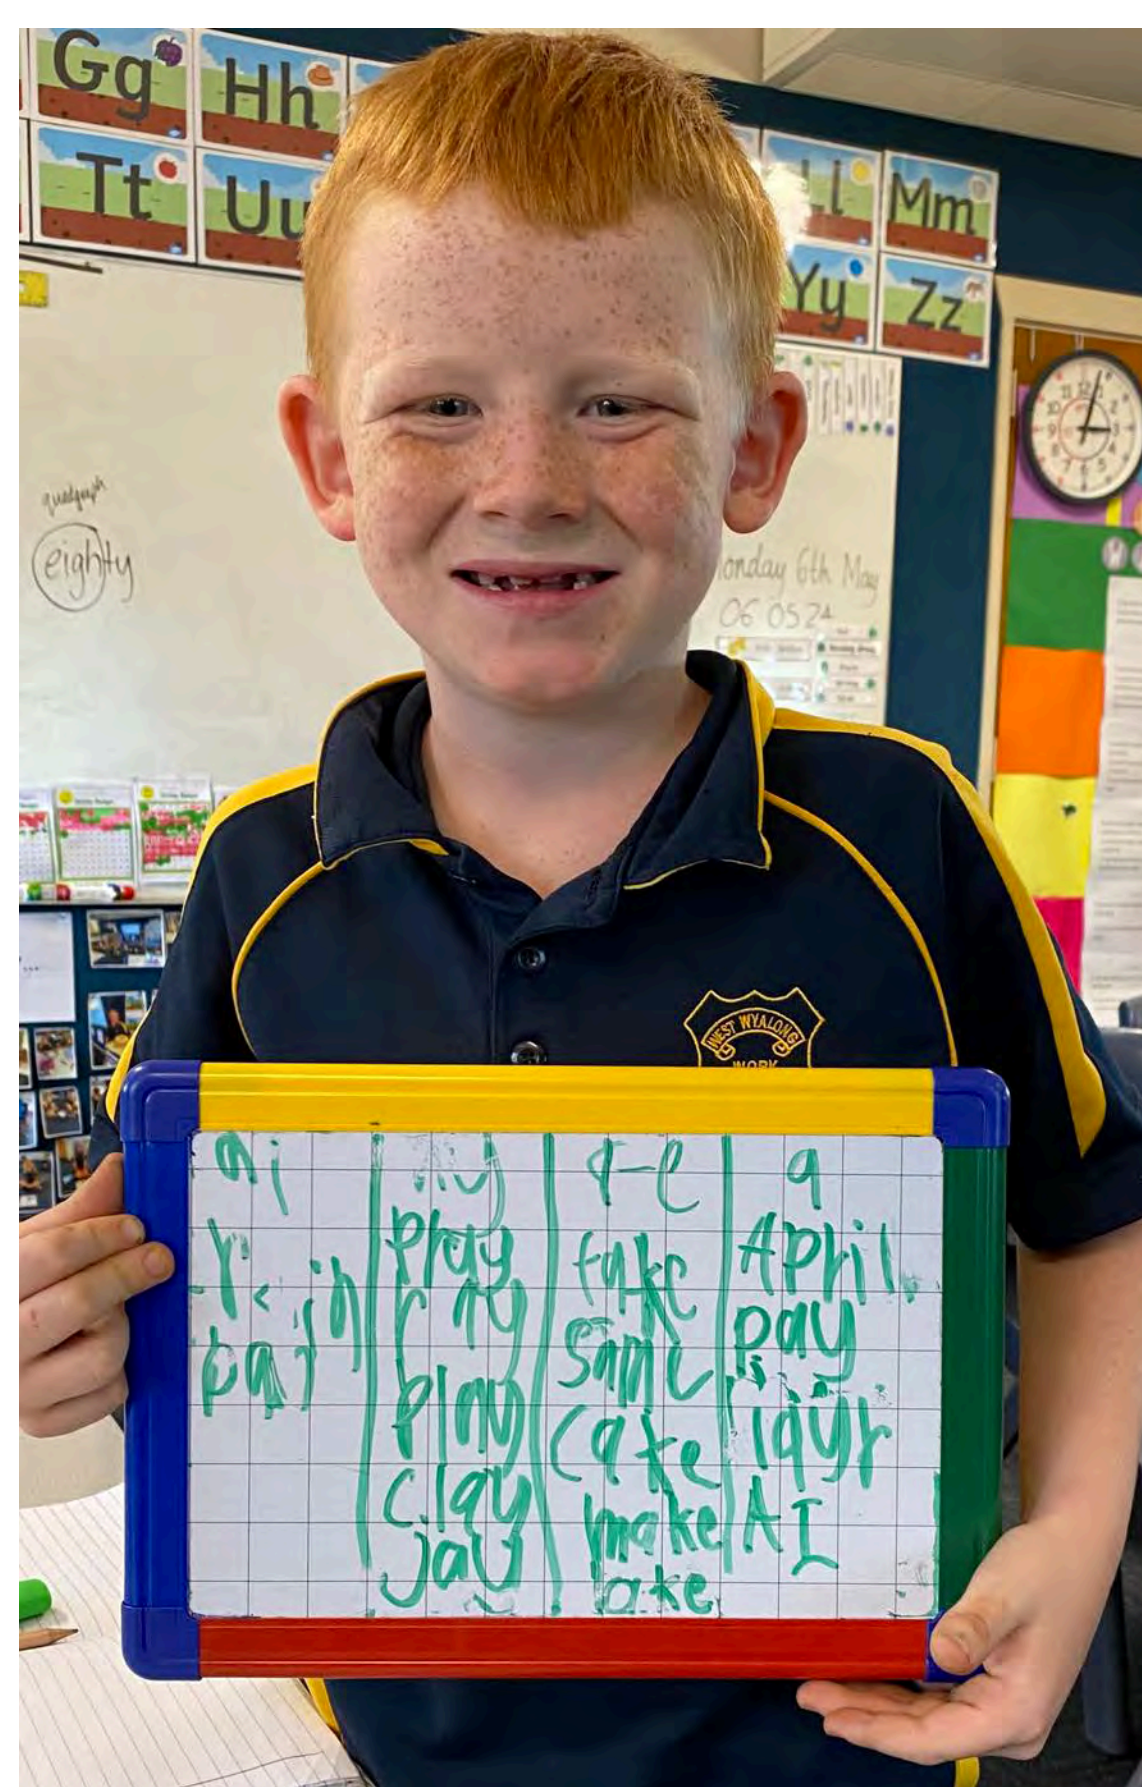 Gg Hh
Tt Uu
Ll Mm
Yy Zz
quadgraph
eighty
Monday 6th May
06 05 24
WEST WYALONG
WORK
ai ay a-e a
pray take April
rain ray same pay
pai play cake layr
clay make AI
jay lake